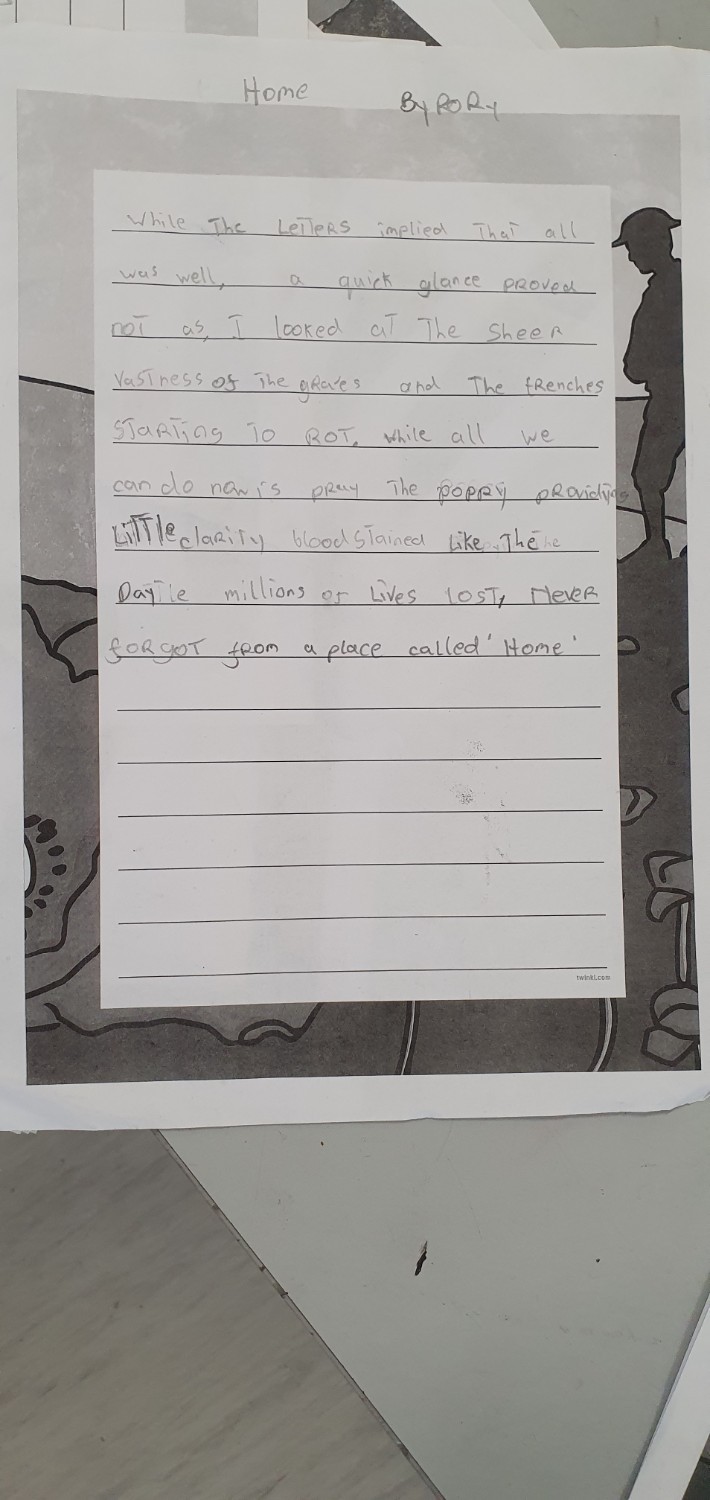 Home By RORY
While The Letters implied That all
was well, a quick glance proved
not as, I looked at The Sheer
Vastness of The graves and The trenches
Starting To Rot. While all we
can do now is pray The poppy providing
Little clarity blood Stained Like The
millions of Lives lost, Never
forgot from a place called 'Home'
twinkl.com